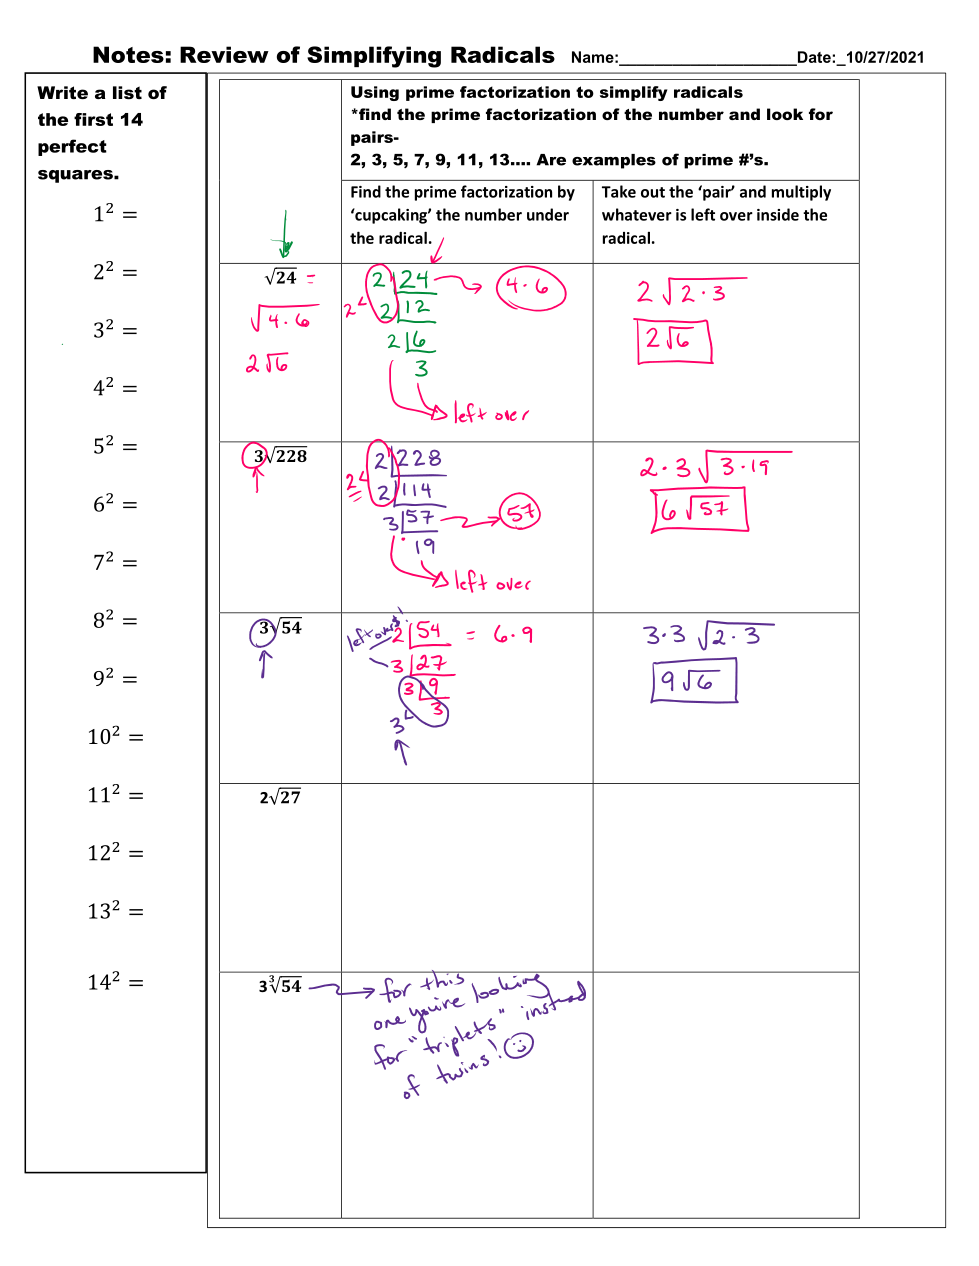 Notes: Review of Simplifying Radicals Name:____________________Date:_10/27/2021
Write a list of
the first 14
perfect
squares.
1² =
2² =
3² =
4² =
5² =
6² =
7² =
8² =
9² =
10² =
11² =
12² =
13² =
14² =
Using prime factorization to simplify radicals
*find the prime factorization of the number and look for
pairs-
2, 3, 5, 7, 9, 11, 13…. Are examples of prime #'s.
Find the prime factorization by
'cupcaking' the number under
the radical.
Take out the 'pair' and multiply
whatever is left over inside the
radical.
√24 =
√4·6
2√6
2 24
2 12
2 6
3
2
4·6
left over
2√2·3
2√6
3√228
2 228
2 114
3 57
19
2
57
left over
2·3√3·19
6√57
3√54
leftovers!
2 54 = 6·9
3 27
3 9
3
3
3·3√2·3
9√6
2√27
3∛54
for this
one you're looking
for "triplets" instead
of twins!